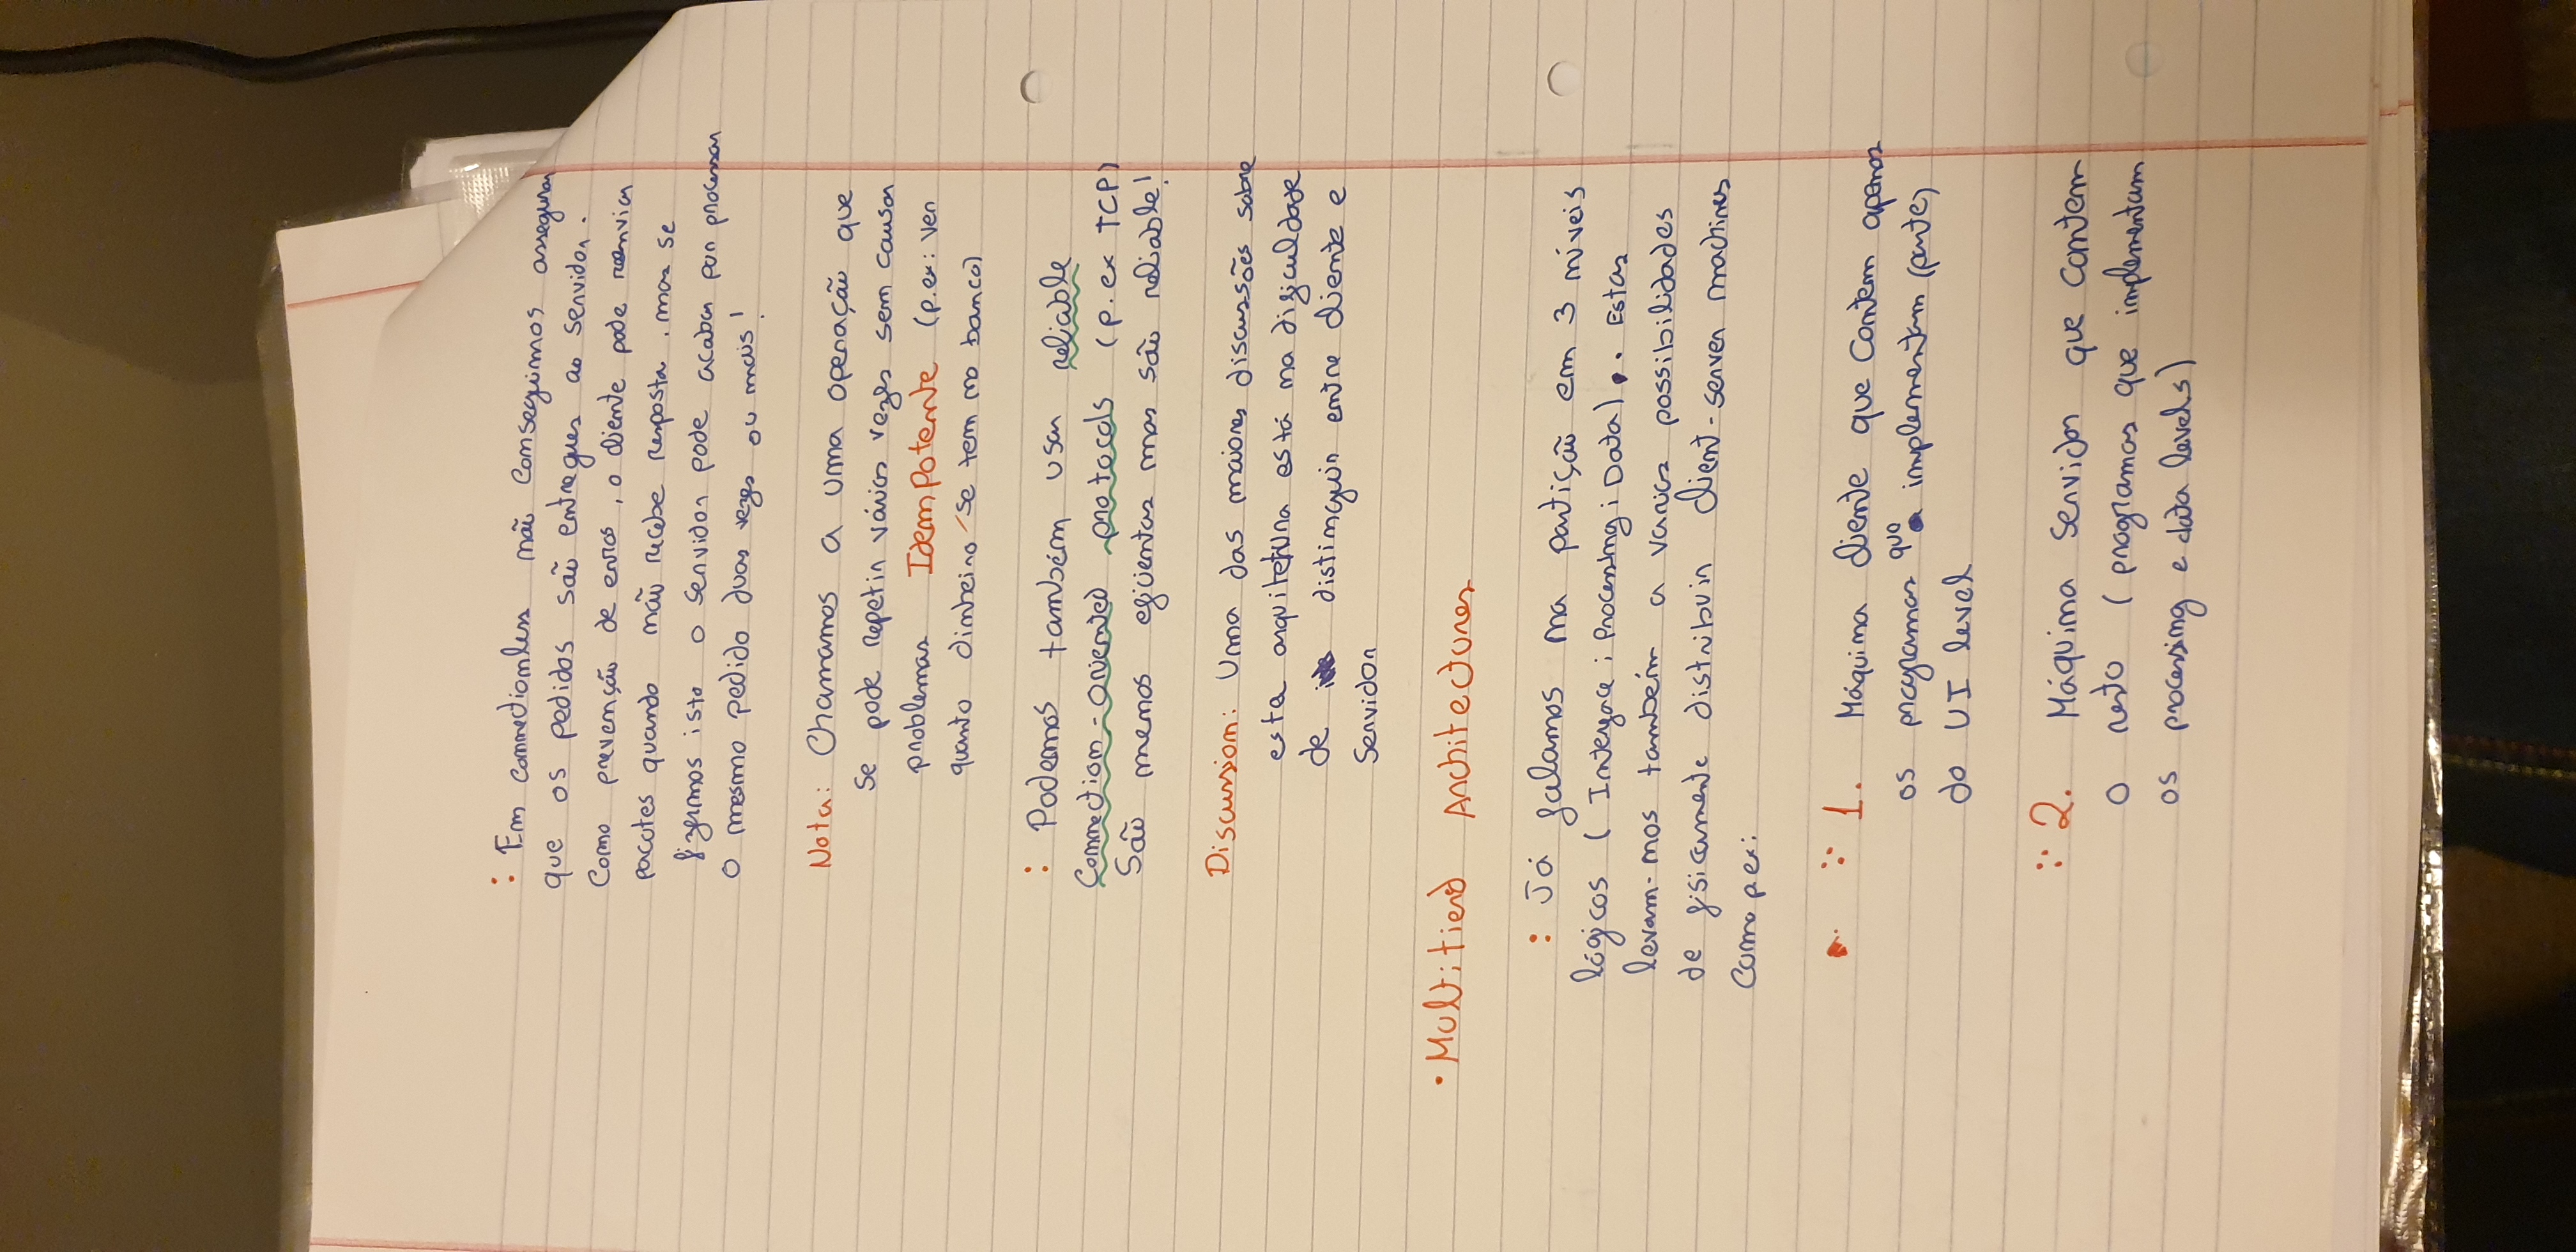 : Em connectionless não conseguimos assegurar
que os pedidos são entregues ao servidor.
Como prevenção de erros, o cliente pode reenviar
pacotes quando não recebe resposta, mas se
fizermos isto o servidor pode acabar por processar
o mesmo pedido duas vezes ou mais!
Nota: Chamamos a uma operação que
se pode repetir várias vezes sem causar
problemas Idempotente (p.ex: ver
quanto dinheiro se tem no banco)
: Podemos também usar reliable
connection-oriented protocols (p.ex TCP)
São menos eficientes mas são reliable!
Discussion: Uma das maiores discussões sobre
esta arquitetura está na dificuldade
de distinguir entre cliente e
servidor
• Multitierd Architectures
: Já falamos na partição em 3 níveis
lógicos (Interface; Processing; Data). Estas
levam-nos também a varias possibilidades
de fisicamente distribuir client-server machines
como p.ex:
:: 1. Máquina cliente que contem apenas
os programas que implementam (parte)
do UI level
:: 2. Máquina servidor que contem
o resto (programas que implementam
os processing e data levels)